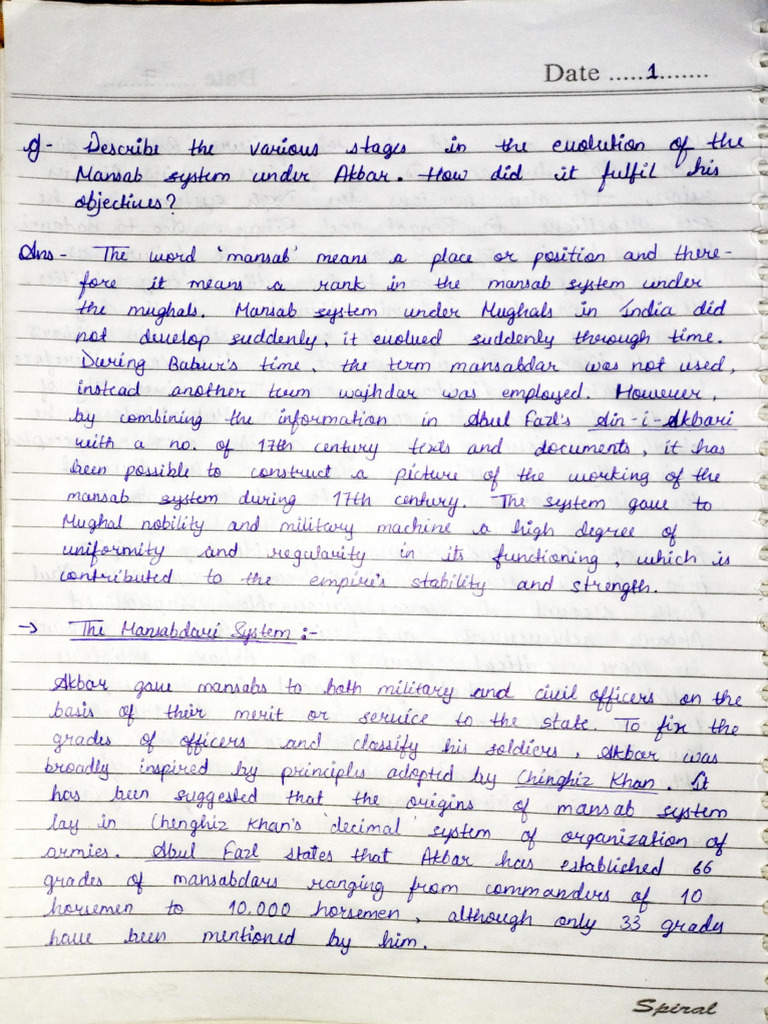 Date .....1.......
Q- Describe the various stages in the evolution of the
Mansab system under Akbar. How did it fulfil his
objectives?
Ans - The word 'mansab' means a place or position and there-
fore it means a rank in the mansab system under
the mughals. Mansab system under Mughals in India did
not develop suddenly, it evolved suddenly through time.
During Babur's time, the term mansabdar was not used,
instead another term wajhdar was employed. However,
by combining the information in Abul Fazl's Ain-i-Akbari
with a no. of 17th century texts and documents, it has
been possible to construct a picture of the working of the
mansab system during 17th century. The system gave to
Mughal nobility and military machine a high degree of
uniformity and regularity in its functioning, which is
contributed to the empire's stability and strength.
→ The Mansabdari System :-
Akbar gave mansabs to both military and civil officers on the
basis of their merit or service to the state. To fix the
grades of officers and classify his soldiers, Akbar was
broadly inspired by principles adopted by Chinghiz Khan. It
has been suggested that the origins of mansab system
lay in Chenghiz Khan's 'decimal' system of organization of
armies. Abul Fazl states that Akbar has established 66
grades of mansabdars ranging from commanders of 10
horsemen to 10,000 horsemen, although only 33 grades
have been mentioned by him.
Spiral